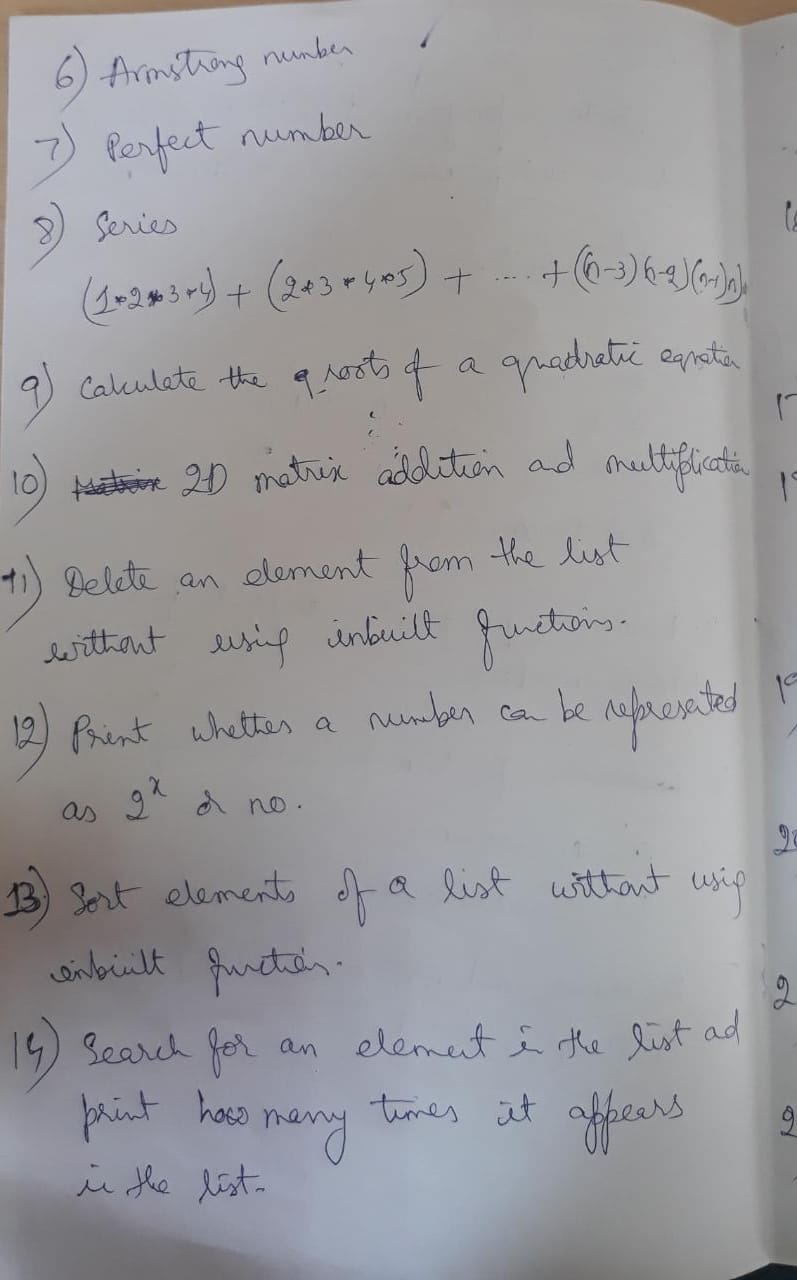 6) Armstrong number
7) Perfect number
8) Series
(1*2*3*4) + (2*3*4*5) + .... + ((n-3)(n-2)(n-1)n)
9) Calculate the roots of a quadratic equation
10) 2D matrix addition and multiplication
11) Delete an element from the list
without using inbuilt functions.
12) Print whether a number can be represented
as 2^x or no.
13) Sort elements of a list without using
inbuilt function.
14) Search for an element in the list ad
print how many times it appears
in the list.